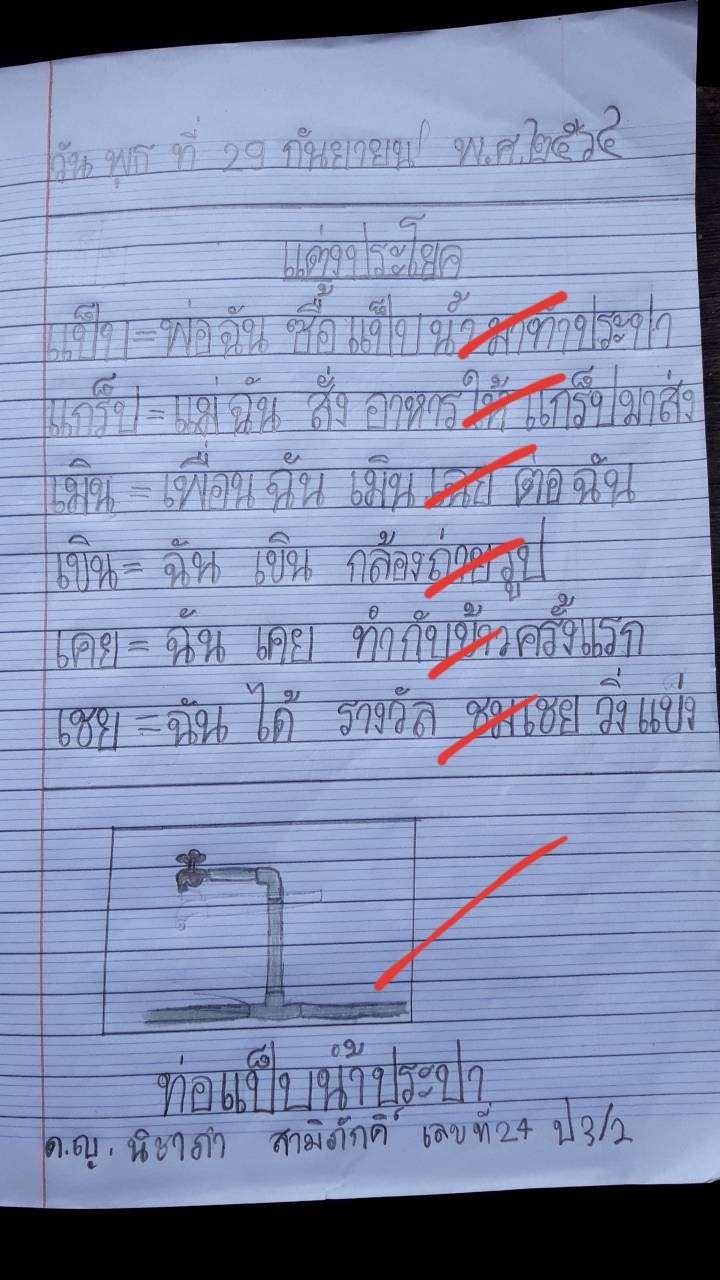 วัน พุธ ที่ 29 กันยายน พ.ศ.๒๕๖๔
แต่งประโยค
แป๊บ=พ่อฉัน ซื้อ แป๊บ น้ำ มาทำประปา
แกร็บ=แม่ฉัน สั่ง อาหาร ให้ แกร็บมาส่ง
เมิน=เพื่อน ฉัน เมิน เฉย ต่อ ฉัน
เขิน= ฉัน เขิน กล้องถ่ายรูป
เคย= ฉัน เคย ทำกับข้าวครั้งแรก
เชย=ฉัน ได้ รางวัล ชมเชย วิ่งแข่ง
ท่อแป๊บน้ำประปา
ด.ญ. สามิภักดิ์ เลขที่ 24 ป 3/2